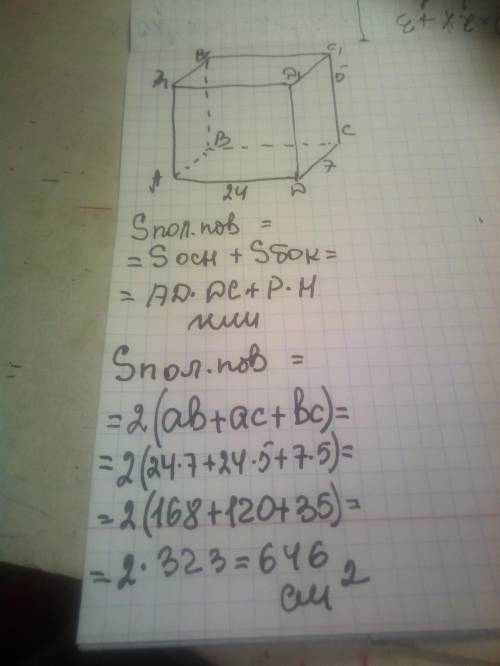 B₁ C₁
A₁ D₁ 5
B C
A D 7
24
Sпол.пов =
= Sосн + Sбок =
= AD·DC + P·H
или
Sпол.пов =
= 2(ab+ac+bc) =
= 2(24·7+24·5+7·5) =
= 2(168+120+35) =
= 2·323 = 646
см²